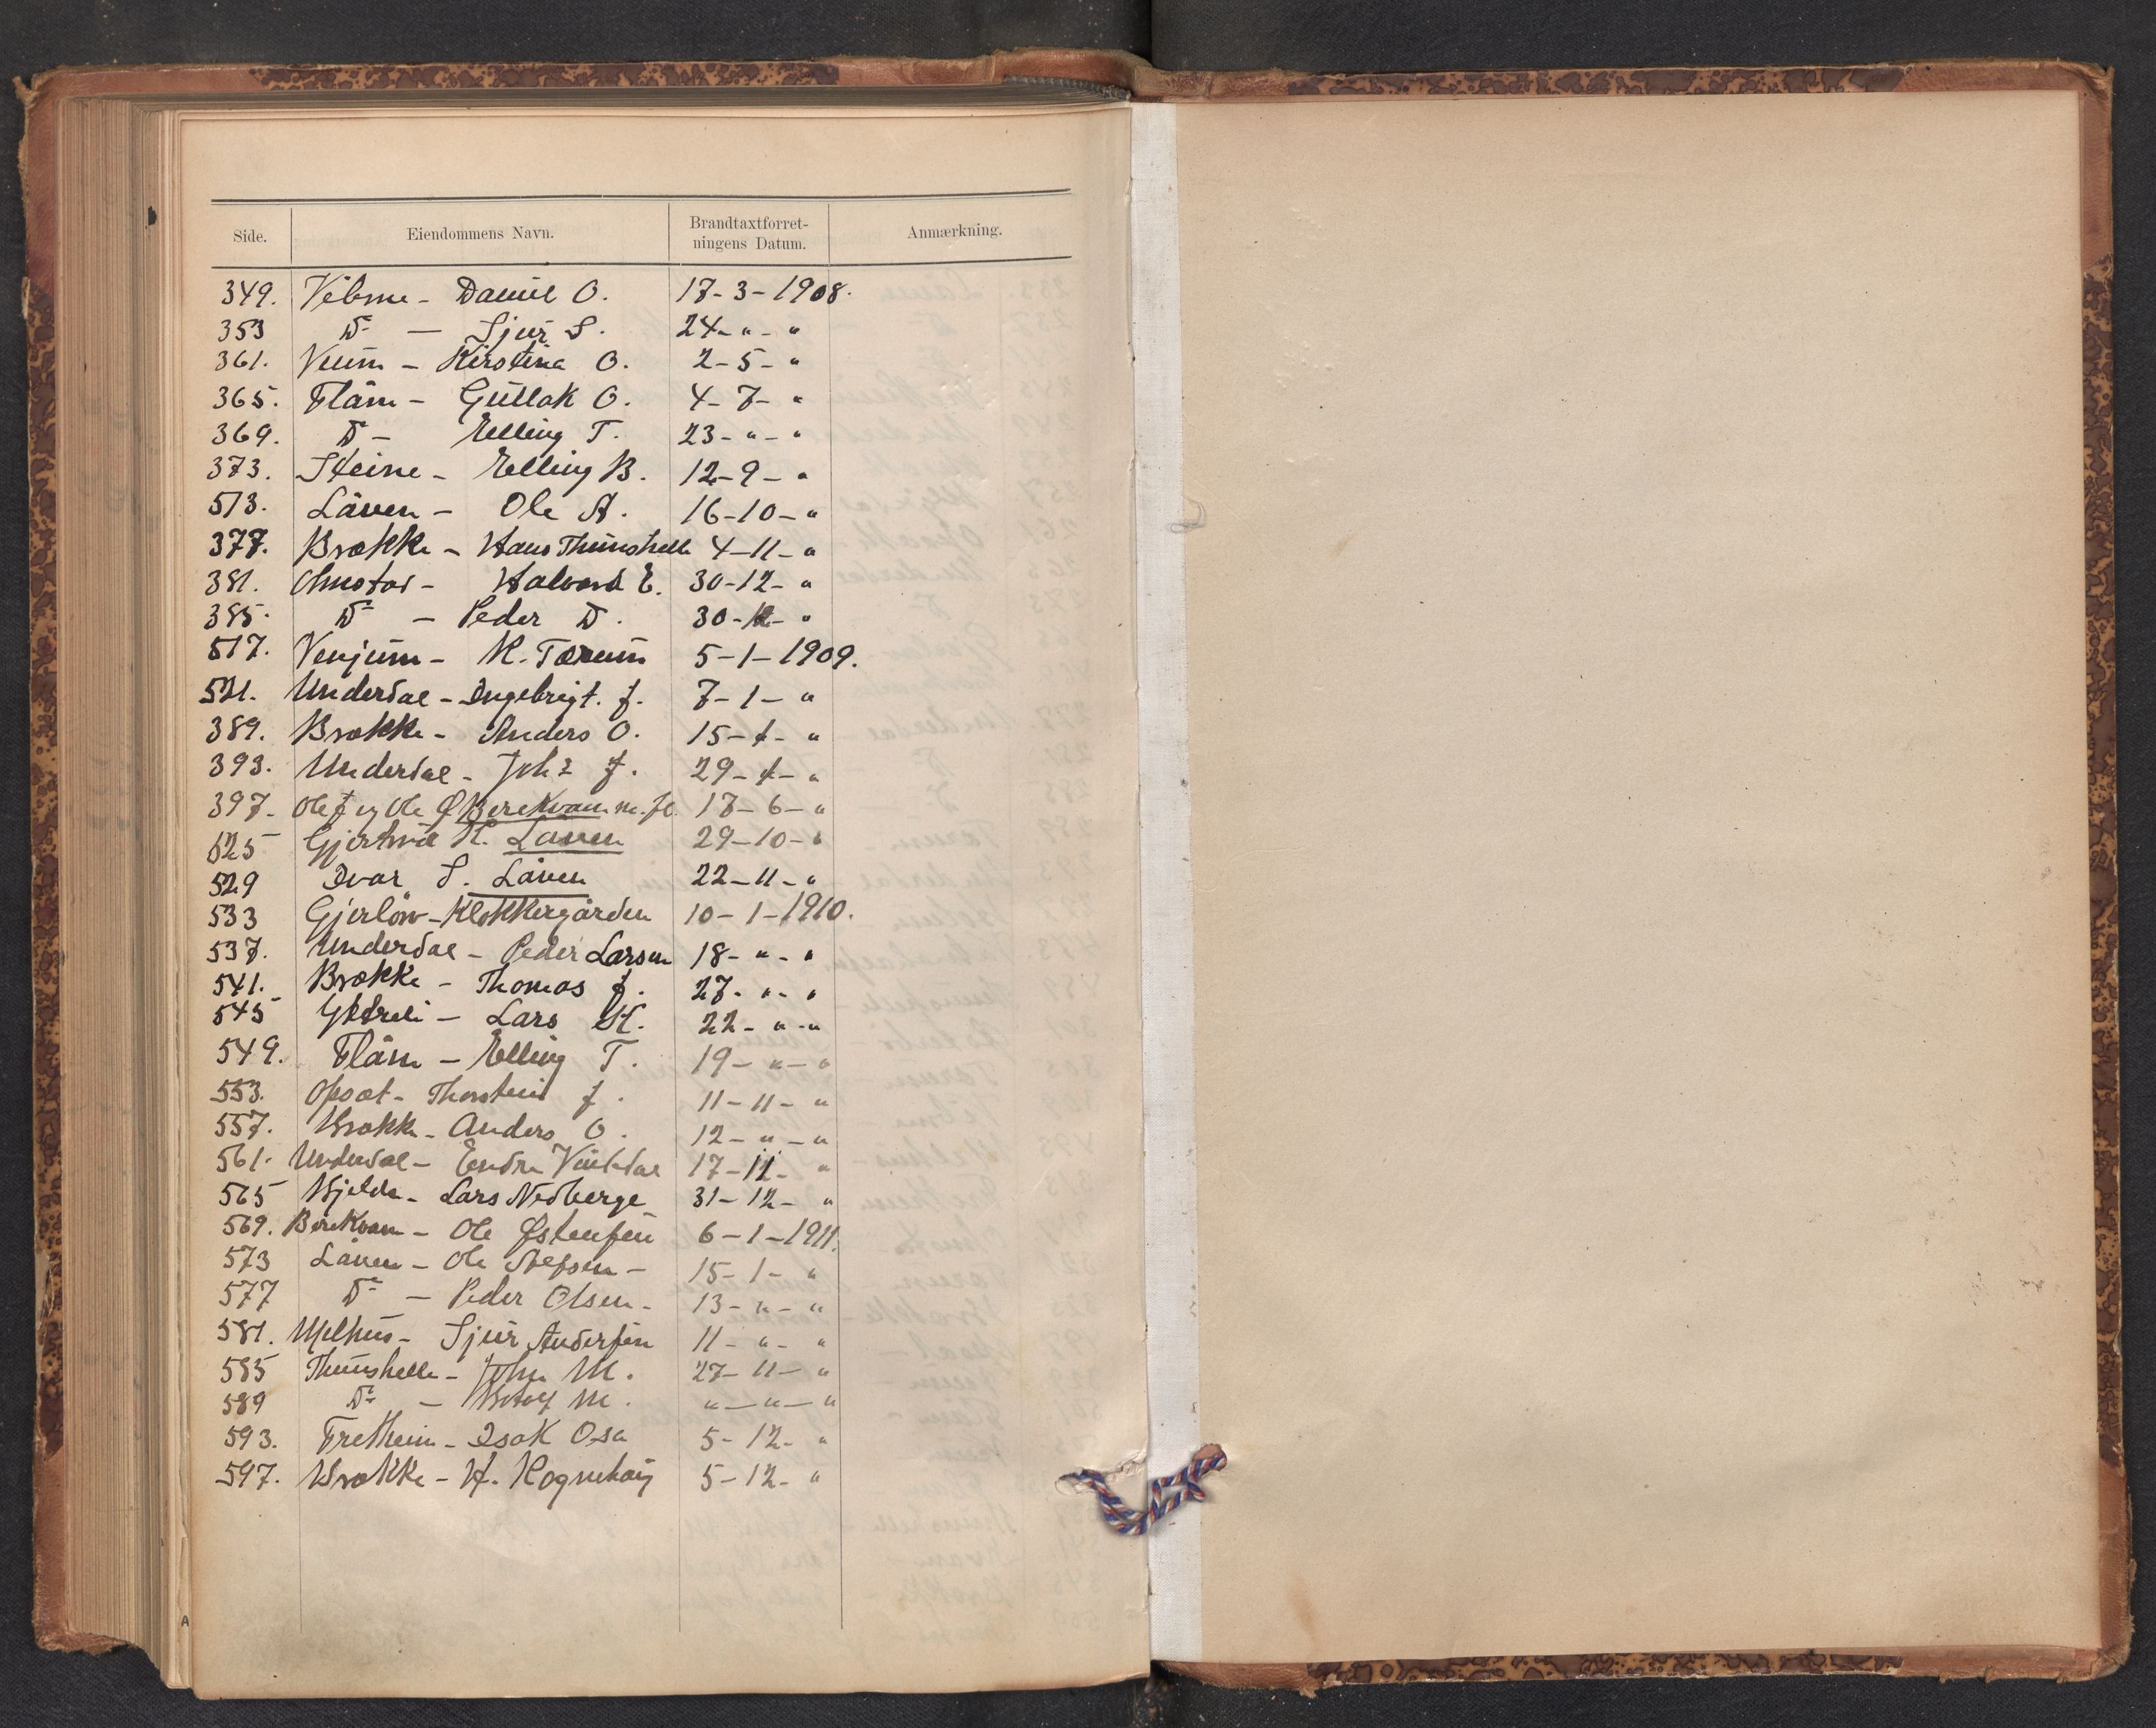 Side. Eiendommens Navn. Brandtaxtforret-ningens Datum. Anmærkning.
349. Vibme - Daniel O. 17-3-1908.
353 Do — Sjur S. 24-"-"
361. Veum - Kirstina O. 2-5-"
365. Flåm - Gullak O. 4-7-"
369. Do - Elling T. 23-"-"
373. Steine - Elling B. 12-9-"
513. Låven - Ole A. 16-10-"
377. Brække - Hans Thunshelle 4-11-"
381. Halvard E. 30-12-"
385. Do — Peder D. 30-12-"
517. Venjum - K. Tærum 5-1-1909.
521. Underdal - Ingebrigt. J. 7-1-"
389. Brække - Anders O. 15-4-"
393. Underdal - Johs J. 29-4-"
397. Ole J og Ole Ø Berekvam m.fl. 17-6-"
525 Gjertrud K. Låven 29-10-"
529 Ivar S. Låven 22-11-"
533 Gjerløw - Klokkergården 10-1-1910.
537. Underdal - Peder Larsen 18-"-"
541. Brække - Thomas J. 27-"-"
545 Ytreli - Lars K. 22-"-"
549. Flåm - Elling T. 19-"-"
553. Opsæt - Thorstein J. 11-11-"
557. Brække - Anders O. 12-"-"
561. Underdal - Endre 17-11-"
565 Hjelde - Lars Nedberge 31-12-"
569. Berekvam - Ole Østensen 6-1-1911.
573 Låven - Ole 15-1-"
577 Do — Peder Olsen - 13-"-"
581. Melhus - Sjur Andersen 11-"-"
585 Thunshelle - John M. 27-11-"
589 Do — Botolf M. "-"-"
593. Fretheim - Isak Osa 5-12-"
597. Brække - H. Rognehaug 5-12-"